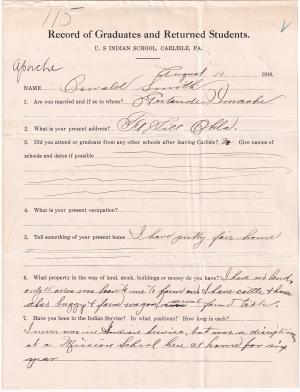 115
Record of Graduates and Returned Students.
U. S INDIAN SCHOOL, CARLISLE, PA.
Apache
August 10 1910.
NAME Oswald Smith
1. Are you married and if so to whom? Imache
2. What is your present address? Ft Sill Okla.
3. Did you attend or graduate from any other schools after leaving Carlisle? No Give names
of schools and dates if possible
4. What is your present occupation?
5. Tell something of your present home I have pretty fair home
6. What property in the way of land, stock, buildings or money do you have? I have no land,
only acres to farm on. I have cattle & horses
also buggy & farm wagon, farm tools.
7. Have you been in the Indian Service? In what positions? How long in each?
I never was in Indian Service, but was a
at a Mission School here at home for six
year